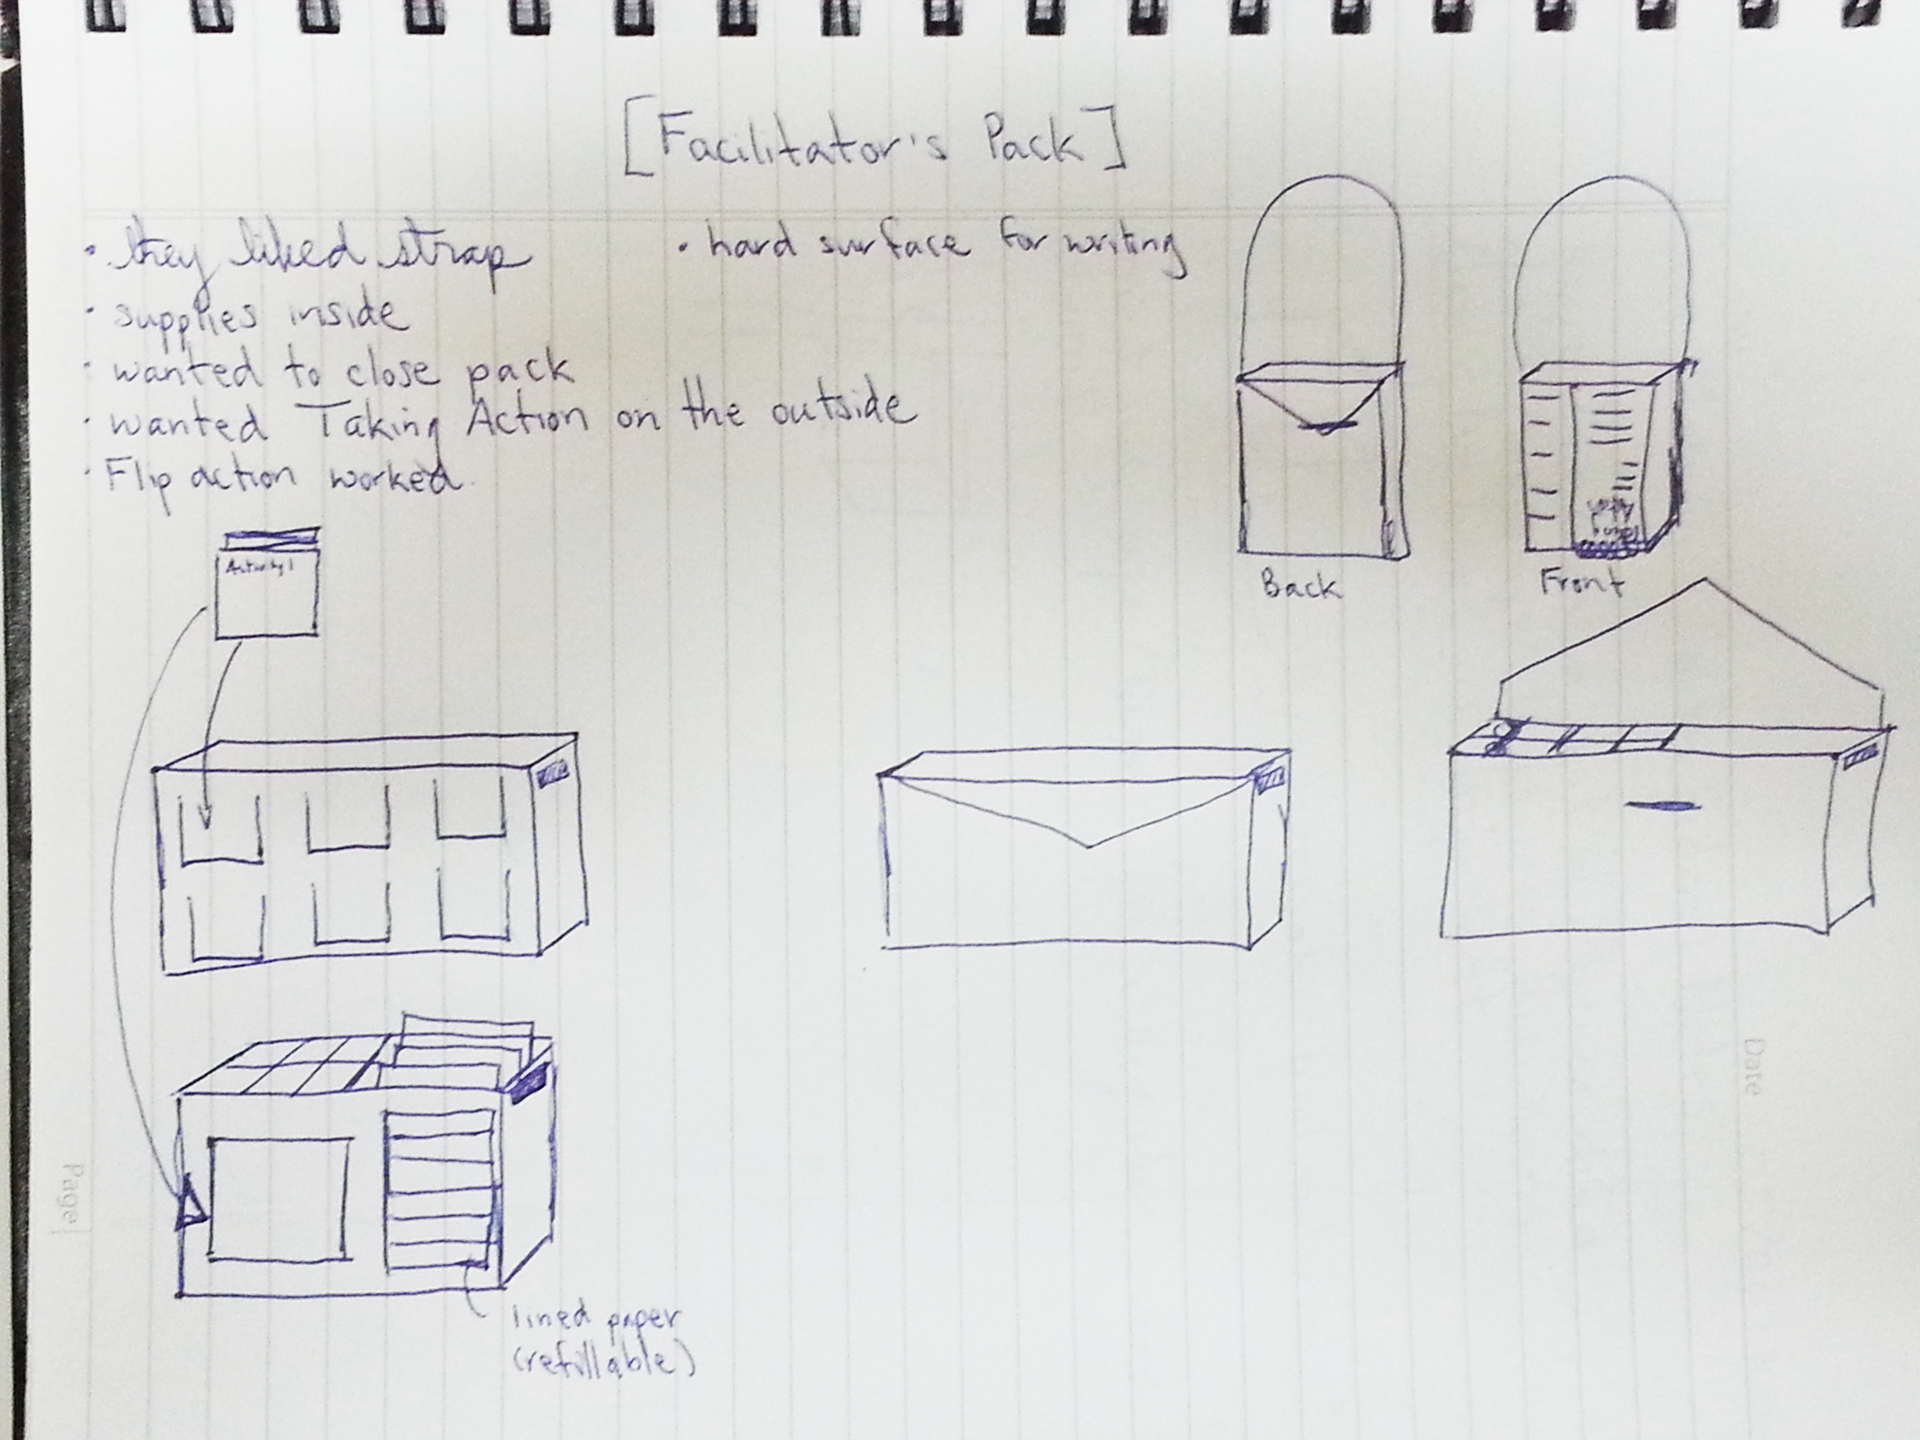 [Facilitator's Pack]
• they liked strap
• supplies inside
• wanted to close pack
• wanted Taking Action on the outside
• Flip action worked.
• hard surface for writing
Back
Front
Activity 1
lined paper
(refillable)
Page
Date